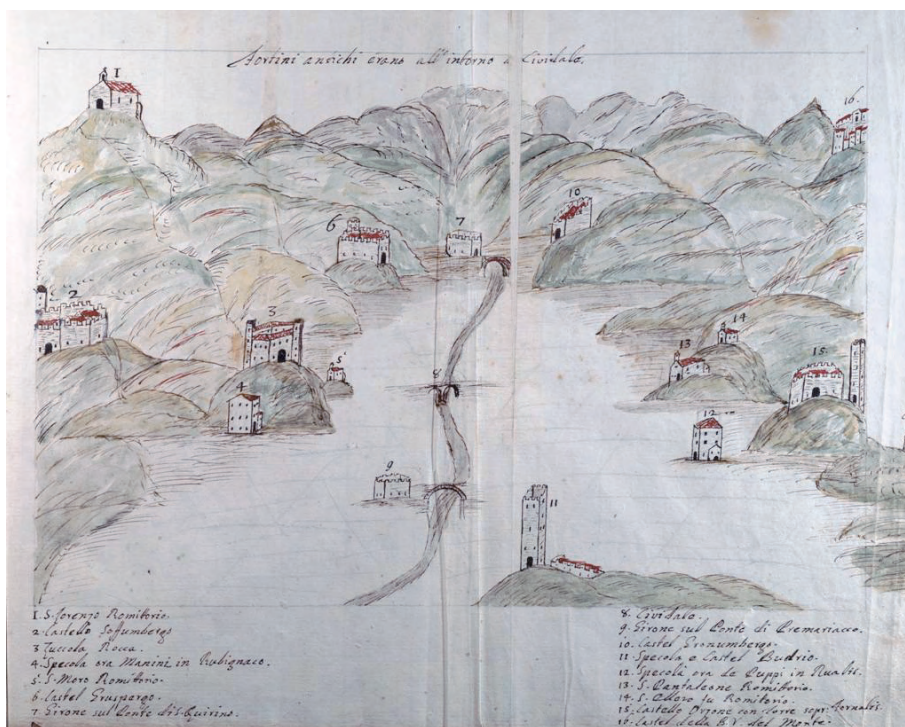 Fortini antichi erano all'intorno a Cividale.
1
16
10
6
7
2
3
5
14
8
13
15
4
12
9
11
1. S. Lorenzo Romitorio.
2. Castello Soffumbergo
3 Zuccola Rocca.
4. Specola ora Manini in Rubignaco.
5. S. Moro Romitorio.
6. Castel Gruspergo.
7 Girone sul Ponte di S. Quirino.
8. Cividale.
9. Girone sul Ponte di Premariacco.
10. Castel Gronumbergo.
11 Specola e Castel Budrio.
12. Specola ora de Puppi in Rualis.
13. S. Pantaleone Romitorio.
14. S. Romitorio.
15 Castello con torre sopr. Fornalis.
16. Castel della B. V. del Monte.